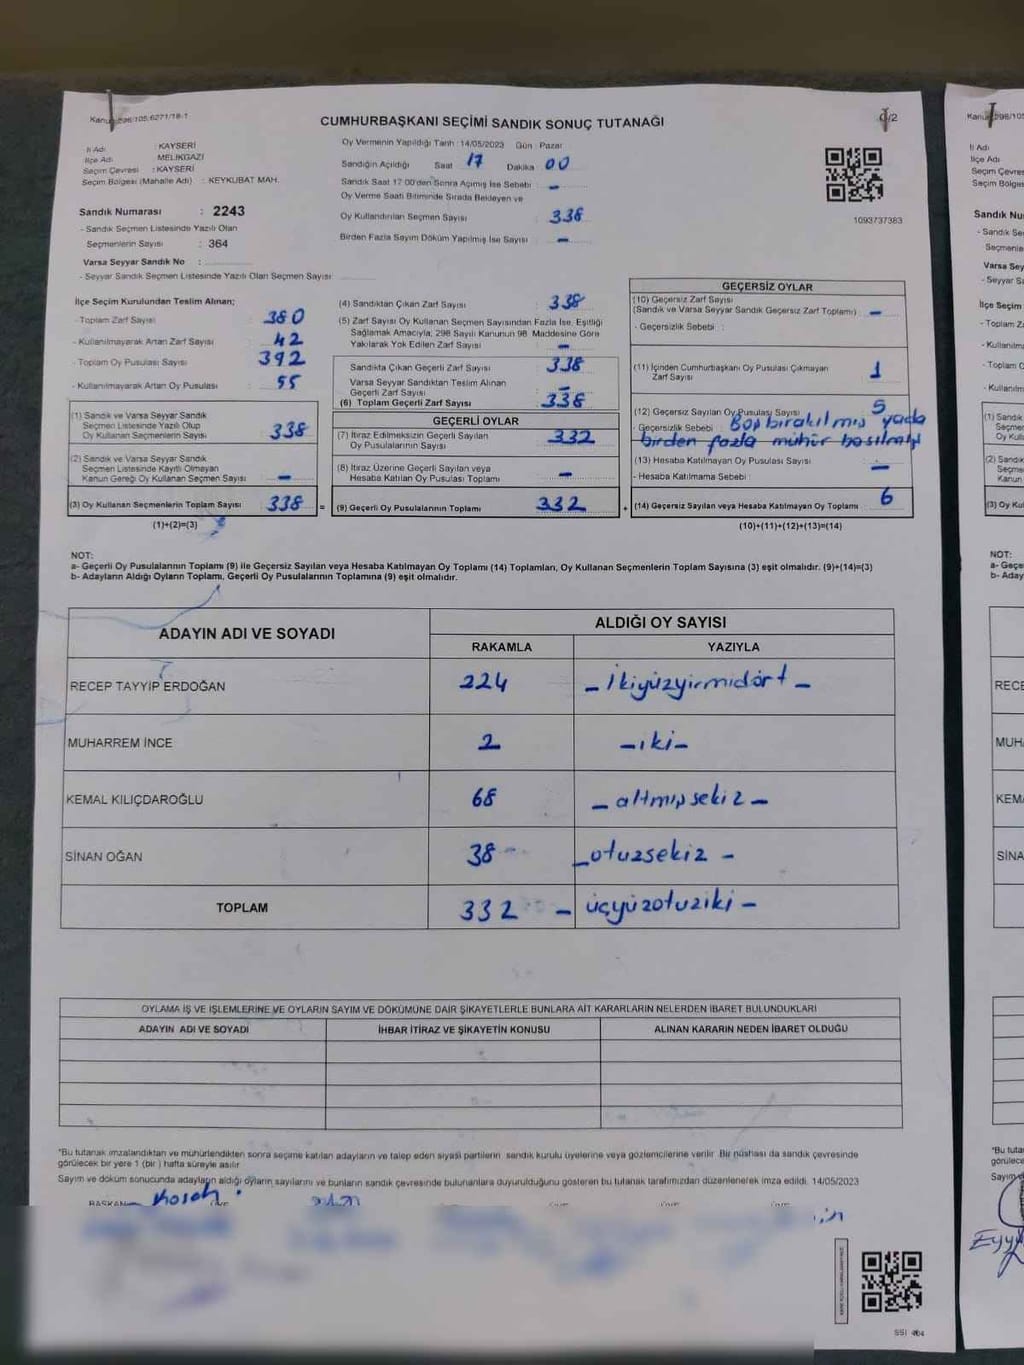 Kanun 298/105;6271/18-1
CUMHURBAŞKANI SEÇİMİ SANDIK SONUÇ TUTANAĞI
/2
İli Adı : KAYSERİ
İlçe Adı : MELİKGAZİ
Seçim Çevresi : KAYSERİ
Seçim Bölgesi (Mahalle Adı) : KEYKUBAT MAH.
Sandık Numarası : 2243
- Sandık Seçmen Listesinde Yazılı Olan
Seçmenlerin Sayısı : 364
Varsa Seyyar Sandık No :
- Seyyar Sandık Seçmen Listesinde Yazılı Olan Seçmen Sayısı:
Oy Vermenin Yapıldığı Tarih :14/05/2023 Gün : Pazar
Sandığın Açıldığı Saat 17 Dakika 00
Sandık Saat 17:00'den Sonra Açılmış İse Sebebi : –
Oy Verme Saati Bitiminde Sırada Bekleyen ve
Oy Kullandırılan Seçmen Sayısı : 338
Birden Fazla Sayım Döküm Yapılmış İse Sayısı : –
1093737383
İlçe Seçim Kurulundan Teslim Alınan;
- Toplam Zarf Sayısı : 380
- Kullanılmayarak Artan Zarf Sayısı : 42
- Toplam Oy Pusulası Sayısı : 392
- Kullanılmayarak Artan Oy Pusulası : 55
(1) Sandık ve Varsa Seyyar Sandık
Seçmen Listesinde Yazılı Olup
Oy Kullanan Seçmenlerin Sayısı : 338
(2) Sandık ve Varsa Seyyar Sandık
Seçmen Listesinde Kayıtlı Olmayan
Kanun Gereği Oy Kullanan Seçmen Sayısı : –
(3) Oy Kullanan Seçmenlerin Toplam Sayısı : 338 =
(1)+(2)=(3)
(4) Sandıktan Çıkan Zarf Sayısı : 338
(5) Zarf Sayısı Oy Kullanan Seçmen Sayısından Fazla İse, Eşitliği
Sağlamak Amacıyla; 298 Sayılı Kanunun 98. Maddesine Göre
Yakılarak Yok Edilen Zarf Sayısı : –
Sandıkta Çıkan Geçerli Zarf Sayısı : 338
Varsa Seyyar Sandıktan Teslim Alınan
Geçerli Zarf Sayısı : –
(6) Toplam Geçerli Zarf Sayısı : 338
GEÇERLİ OYLAR
(7) İtiraz Edilmeksizin Geçerli Sayılan
Oy Pusulalarının Sayısı : 332
(8) İtiraz Üzerine Geçerli Sayılan veya
Hesaba Katılan Oy Pusulası Toplamı : –
(9) Geçerli Oy Pusulalarının Toplamı : 332 +
GEÇERSİZ OYLAR
(10) Geçersiz Zarf Sayısı
(Sandık ve Varsa Seyyar Sandık Geçersiz Zarf Toplamı) : –
- Geçersizlik Sebebi :
(11) İçinden Cumhurbaşkanı Oy Pusulası Çıkmayan
Zarf Sayısı : 1
(12) Geçersiz Sayılan Oy Pusulası Sayısı : 5
- Geçersizlik Sebebi : Boş bırakılmış yada
birden fazla mühür basılmış
(13) Hesaba Katılmayan Oy Pusulası Sayısı : –
- Hesaba Katılmama Sebebi :
(14) Geçersiz Sayılan veya Hesaba Katılmayan Oy Toplamı : 6
(10)+(11)+(12)+(13)=(14)
NOT:
a- Geçerli Oy Pusulalarının Toplamı (9) ile Geçersiz Sayılan veya Hesaba Katılmayan Oy Toplamı (14) Toplamları, Oy Kullanan Seçmenlerin Toplam Sayısına (3) eşit olmalıdır. (9)+(14)=(3)
b- Adayların Aldığı Oyların Toplamı, Geçerli Oy Pusulalarının Toplamına (9) eşit olmalıdır.
ADAYIN ADI VE SOYADI ALDIĞI OY SAYISI
RAKAMLA YAZIYLA
RECEP TAYYİP ERDOĞAN 224 – ikiyüzyirmidört –
MUHARREM İNCE 2 – iki –
KEMAL KILIÇDAROĞLU 68 – altmışsekiz –
SİNAN OĞAN 38 – otuzsekiz –
TOPLAM 332 – üçyüzotuziki –
OYLAMA İŞ VE İŞLEMLERİNE VE OYLARIN SAYIM VE DÖKÜMÜNE DAİR ŞİKAYETLERLE BUNLARA AİT KARARLARIN NELERDEN İBARET BULUNDUKLARI
ADAYIN ADI VE SOYADI İHBAR İTİRAZ VE ŞİKAYETİN KONUSU ALINAN KARARIN NEDEN İBARET OLDUĞU
*Bu tutanak imzalandıktan ve mühürlendikten sonra seçime katılan adayların ve talep eden siyasi partilerin sandık kurulu üyelerine veya gözlemcilerine verilir. Bir nüshası da sandık çevresinde
görülecek bir yere 1 (bir) hafta süreyle asılır.
Sayım ve döküm sonucunda adayların aldığı oyların sayılarını ve bunların sandık çevresinde bulunanlara duyurulduğunu gösteren bu tutanak tarafımızdan düzenlenerek imza edildi. 14/05/2023
BAŞKAN
Kanun 298/105
İli Adı
İlçe Adı
Seçim Çevres
Seçim Bölges
Sandık Nu
- Sandık Se
Seçmenle
Varsa Sey
- Seyyar S
İlçe Seçim
- Toplam Z
- Kullanılm
- Toplam O
- Kullanılm
(1) Sandık
Seçme
Oy Kul
(2) Sandık
Seçme
Kanun
(3) Oy Kul
NOT:
a- Geçe
b- Aday
RECE
MUH
KEM
SİNA
*Bu tuta
görülece
Sayım
SSI